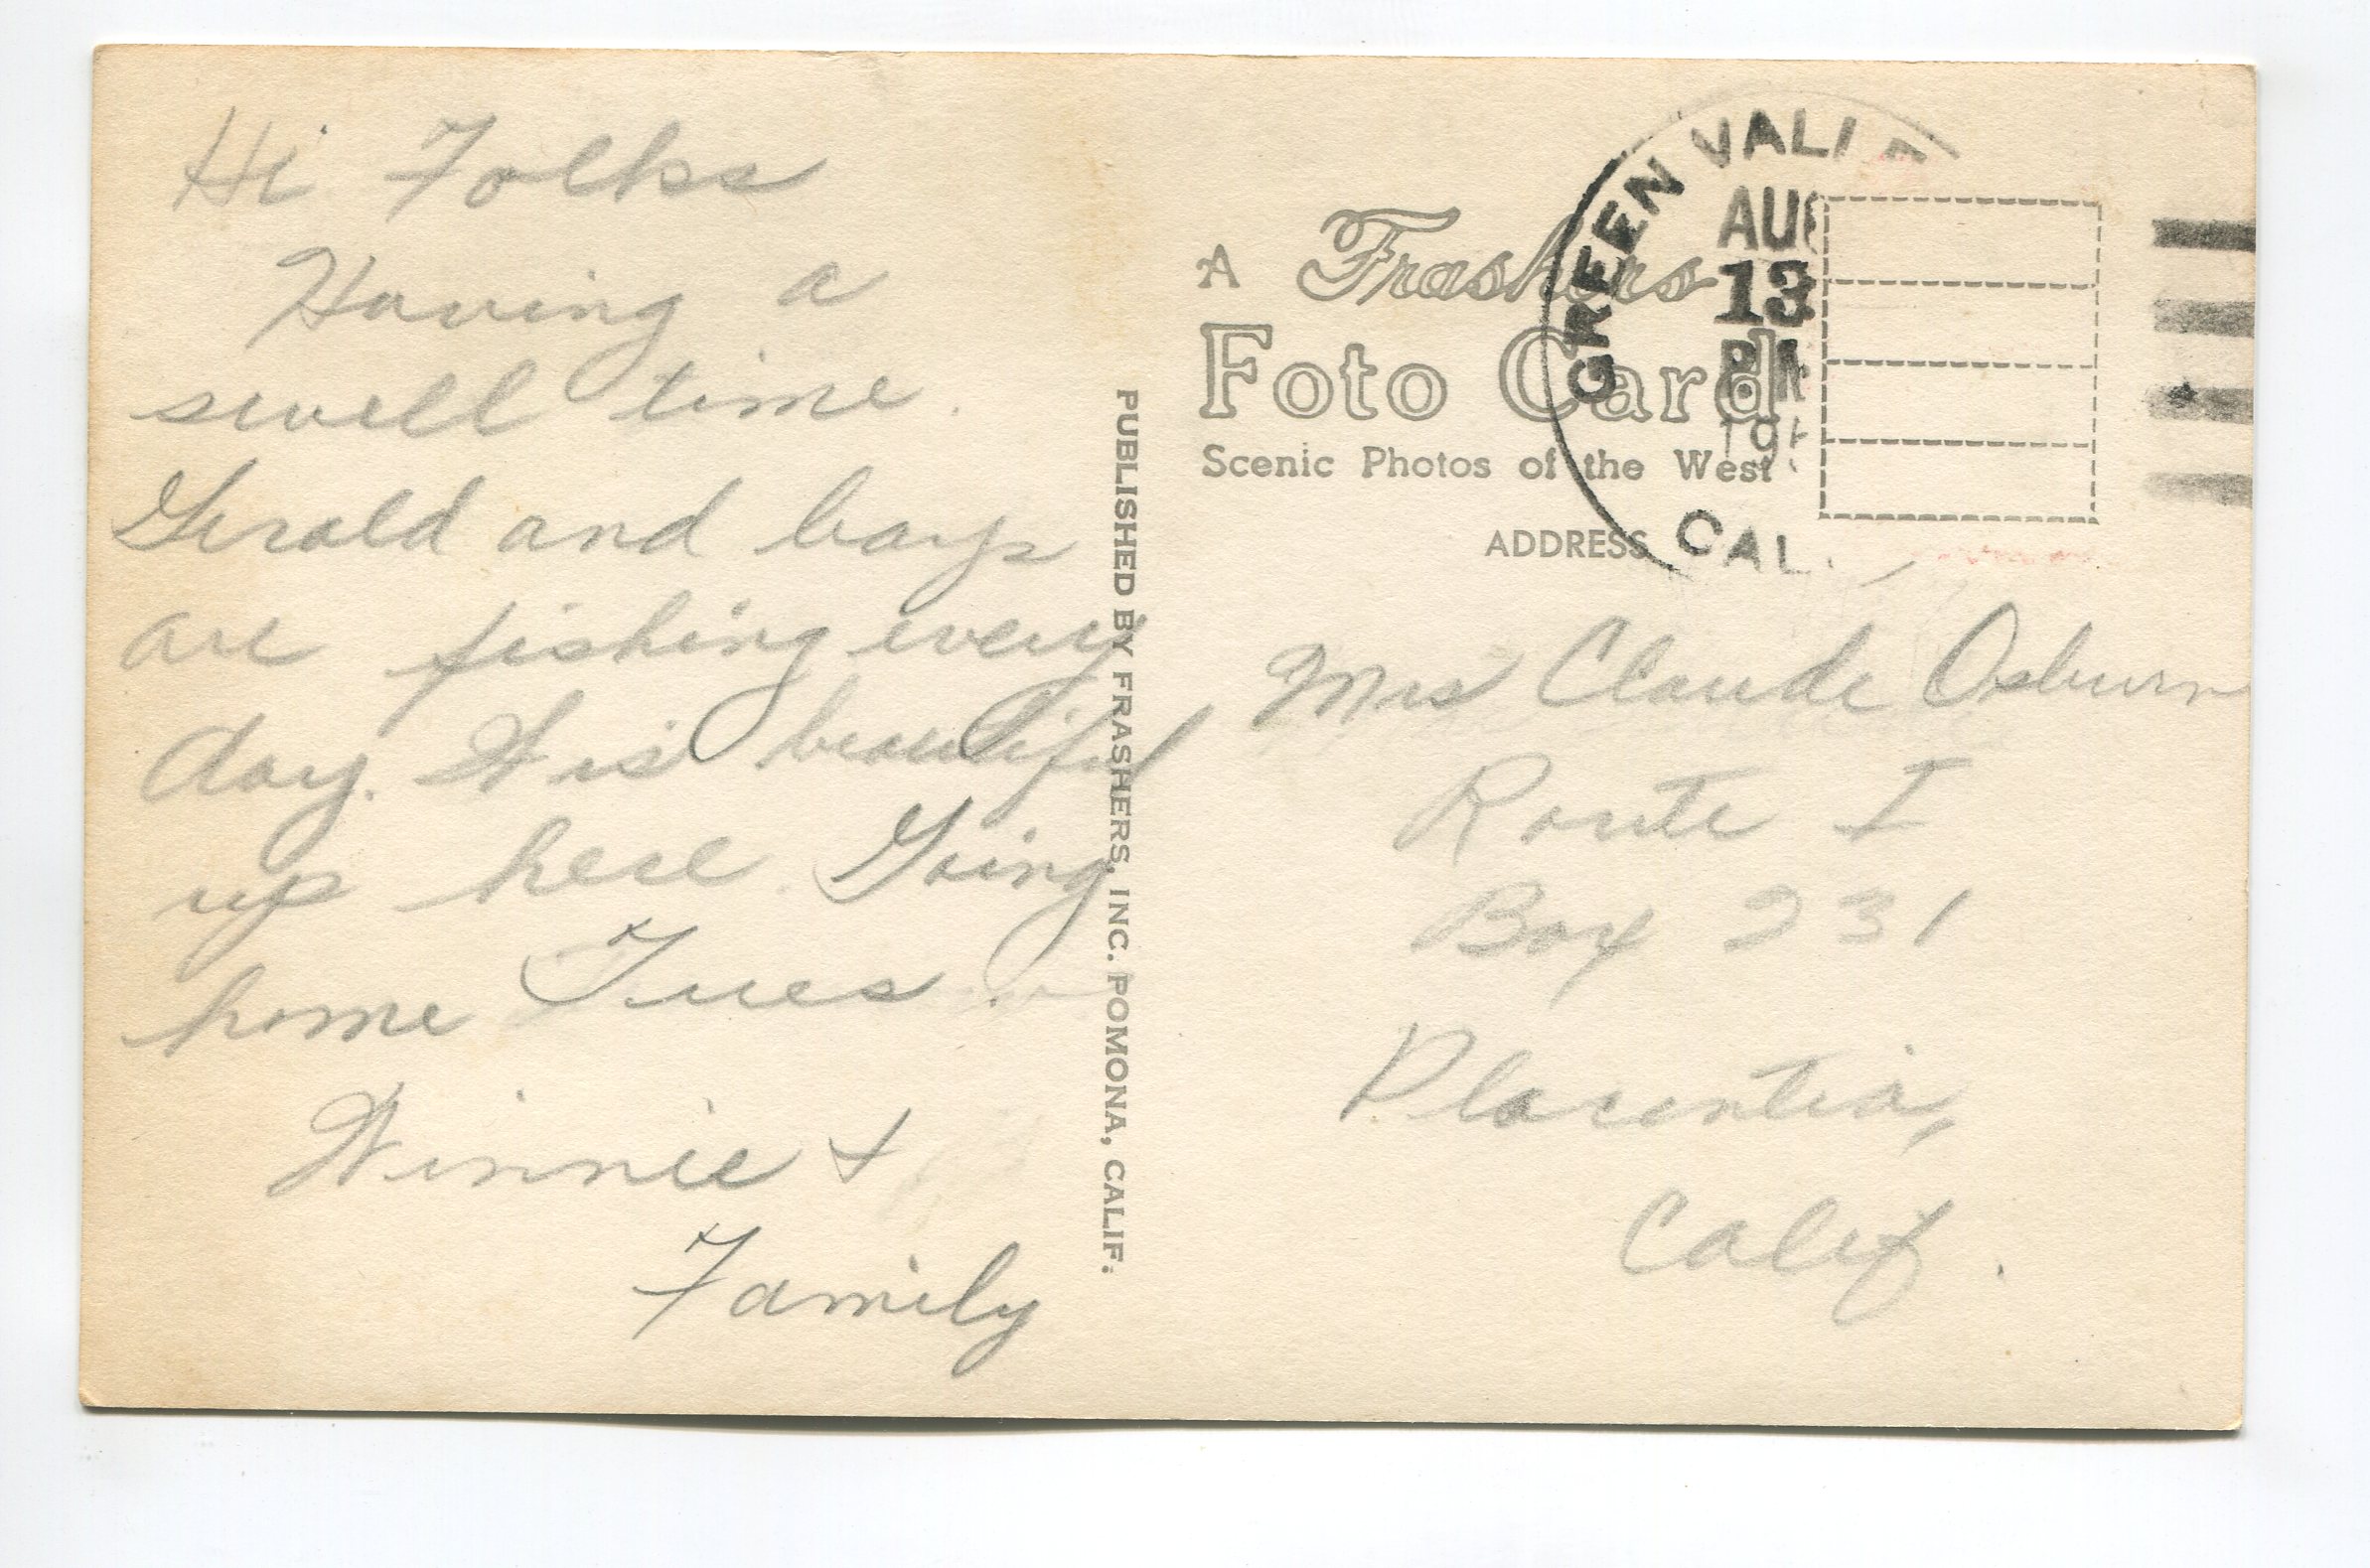 Hi Folks
Having a
swell time.
Gerald and boys
are fishing every
day. It is beautiful
up here. Going
home Tues.
Winnie &
Family
PUBLISHED BY FRASHERS, INC. POMONA, CALIF.
A Frashers
Foto Card
Scenic Photos of the West
ADDRESS
GREEN VALLE
AUG
13
PM
CAL.
Mrs Claude Osburn
Route I
Box 231
Placentia,
Calif.